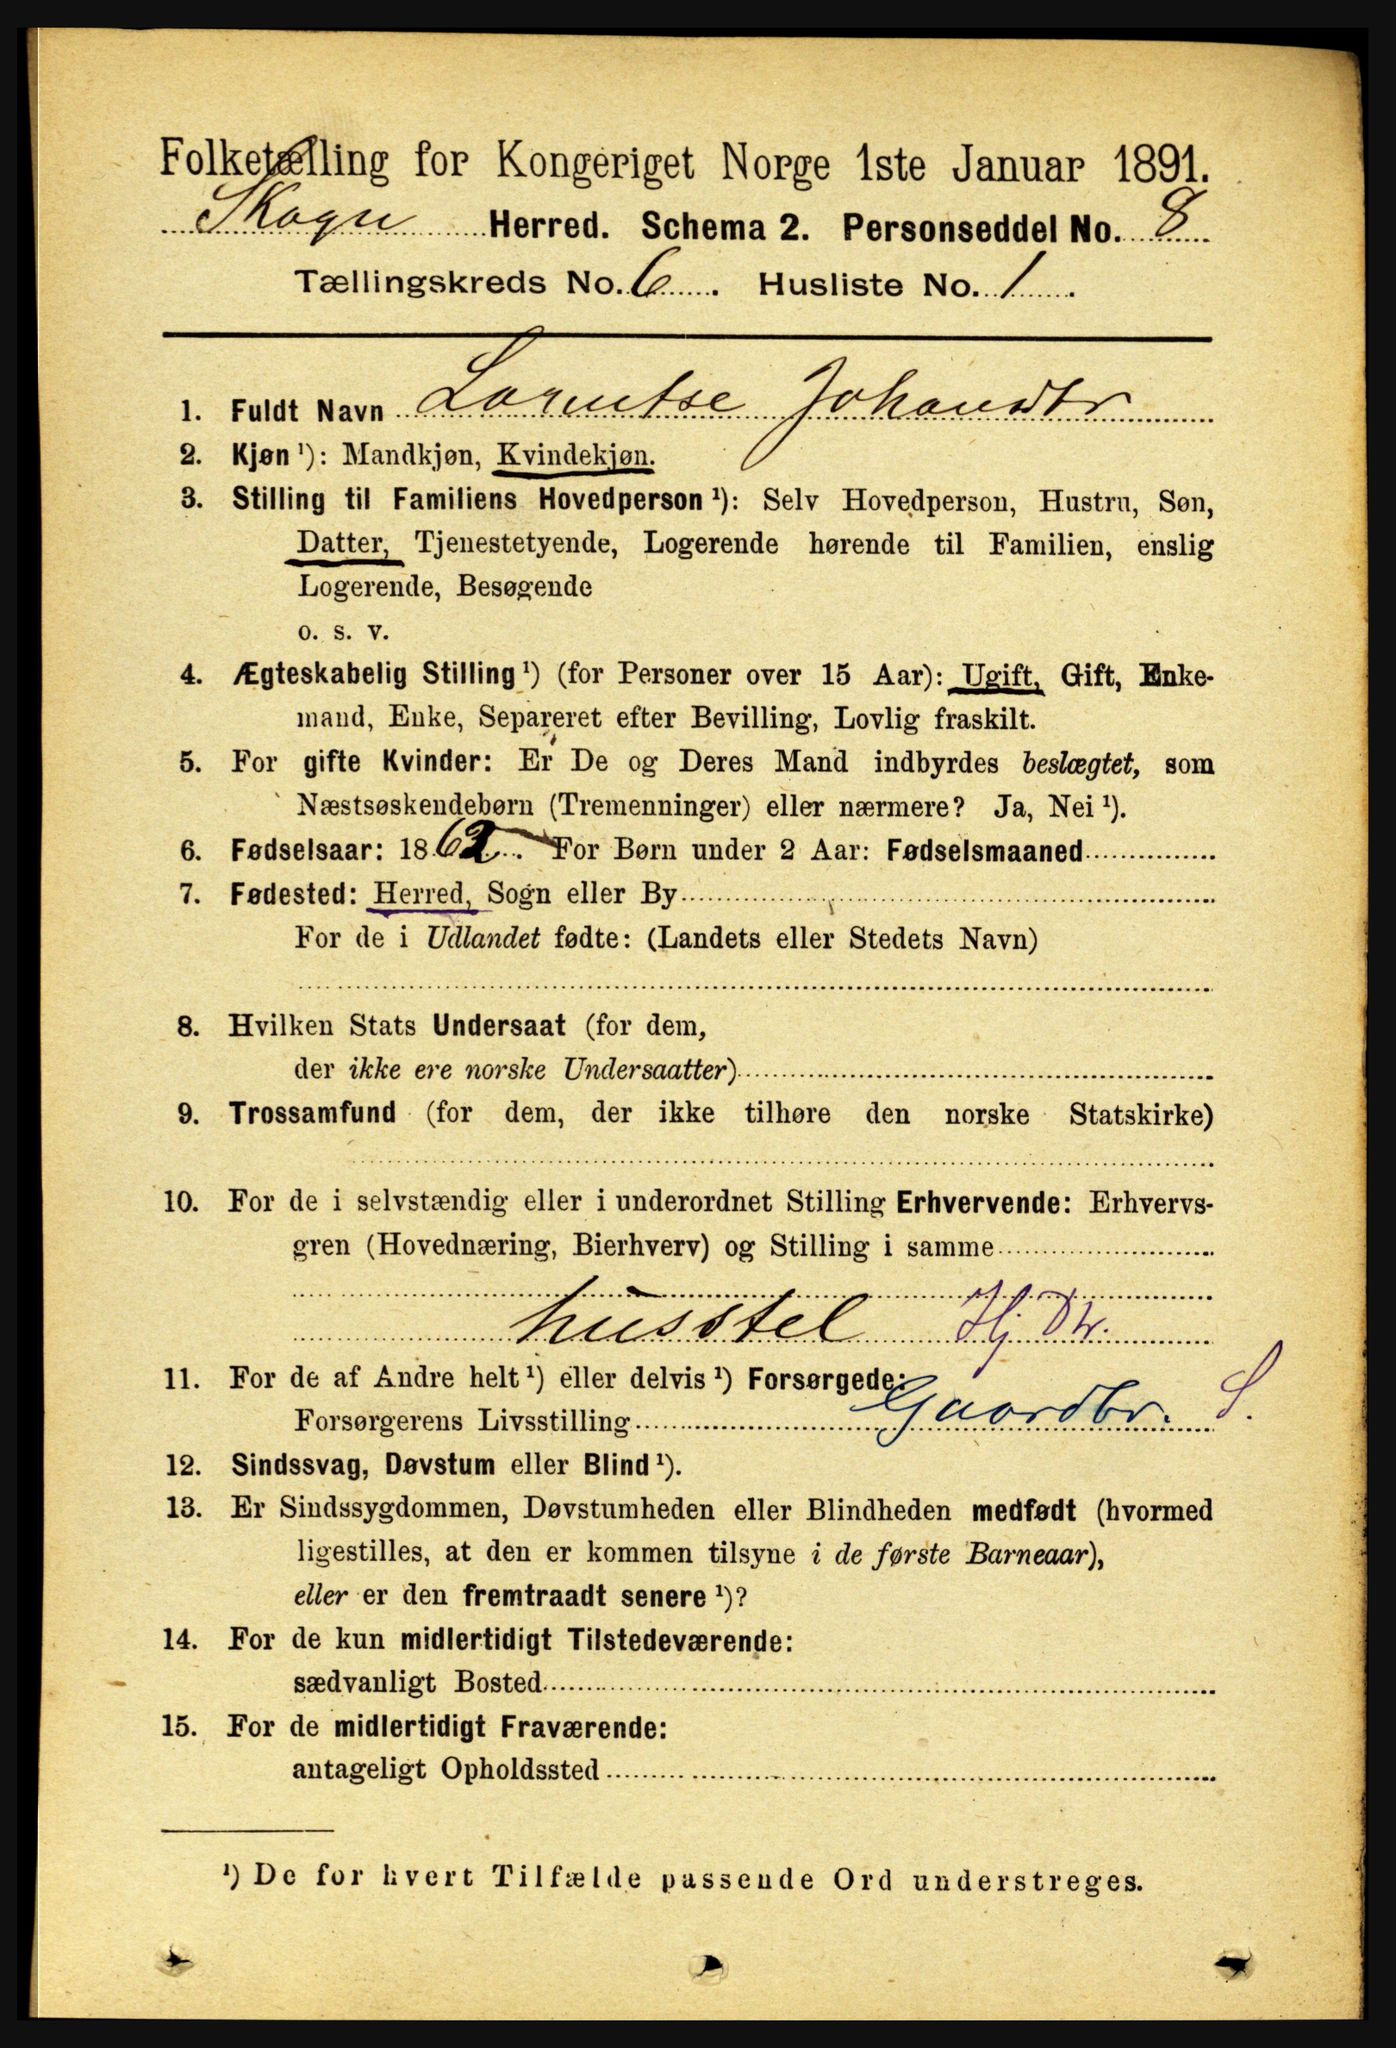 Folketælling for Kongeriget Norge 1ste Januar 1891.
Skogn Herred. Schema 2. Personseddel No. 8
Tællingskreds No. 6. Husliste No. 1.
1. Fuldt Navn Lorentse Johansdtr
2. Kjøn ¹): Mandkjøn, Kvindekjøn.
3. Stilling til Familiens Hovedperson ¹): Selv Hovedperson, Hustru, Søn,
Datter, Tjenestetyende, Logerende hørende til Familien, enslig
Logerende, Besøgende
o. s. v.
4. Ægteskabelig Stilling ¹) (for Personer over 15 Aar): Ugift, Gift, Enke-
mand, Enke, Separeret efter Bevilling, Lovlig fraskilt.
5. For gifte Kvinder: Er De og Deres Mand indbyrdes beslægtet, som
Næstsøskendebørn (Tremenninger) eller nærmere? Ja, Nei ¹).
6. Fødselsaar: 1862. For Børn under 2 Aar: Fødselsmaaned
7. Fødested: Herred, Sogn eller By
For de i Udlandet fødte: (Landets eller Stedets Navn)
8. Hvilken Stats Undersaat (for dem,
der ikke ere norske Undersaatter)
9. Trossamfund (for dem, der ikke tilhøre den norske Statskirke)
10. For de i selvstændig eller i underordnet Stilling Erhvervende: Erhvervs-
gren (Hovednæring, Bierhverv) og Stilling i samme
husstel Hj. Dtr.
11. For de af Andre helt ¹) eller delvis ¹) Forsørgede:
Forsørgerens Livsstilling Gaardbr. S.
12. Sindssvag, Døvstum eller Blind ¹).
13. Er Sindssygdommen, Døvstumheden eller Blindheden medfødt (hvormed
ligestilles, at den er kommen tilsyne i de første Barneaar),
eller er den fremtraadt senere ¹)?
14. For de kun midlertidigt Tilstedeværende:
sædvanligt Bosted
15. For de midlertidigt Fraværende:
antageligt Opholdssted
¹) De for hvert Tilfælde passende Ord understreges.